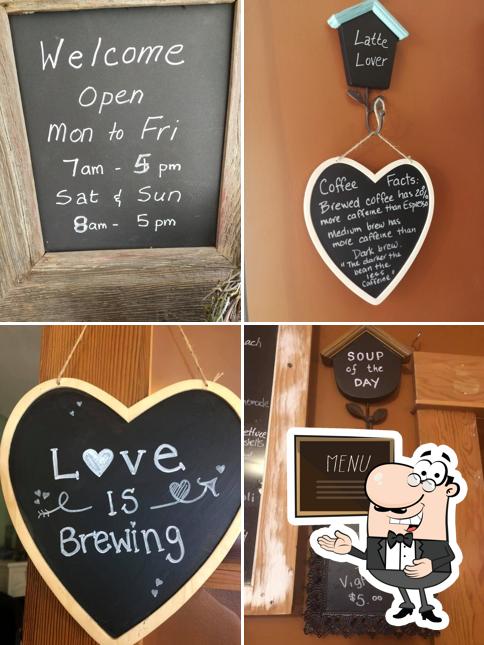 Welcome
Open
Mon to Fri
7am - 5 pm
Sat & Sun
8am - 5 pm
Latte
Lover
Coffee Facts:
Brewed coffee has 20%
more caffeine than Espresso
medium brew has
more caffeine than
Dark brew.
"The darker the
bean the
less
caffeine"
Love
IS
Brewing
SOUP
of the
DAY
MENU
$5.00